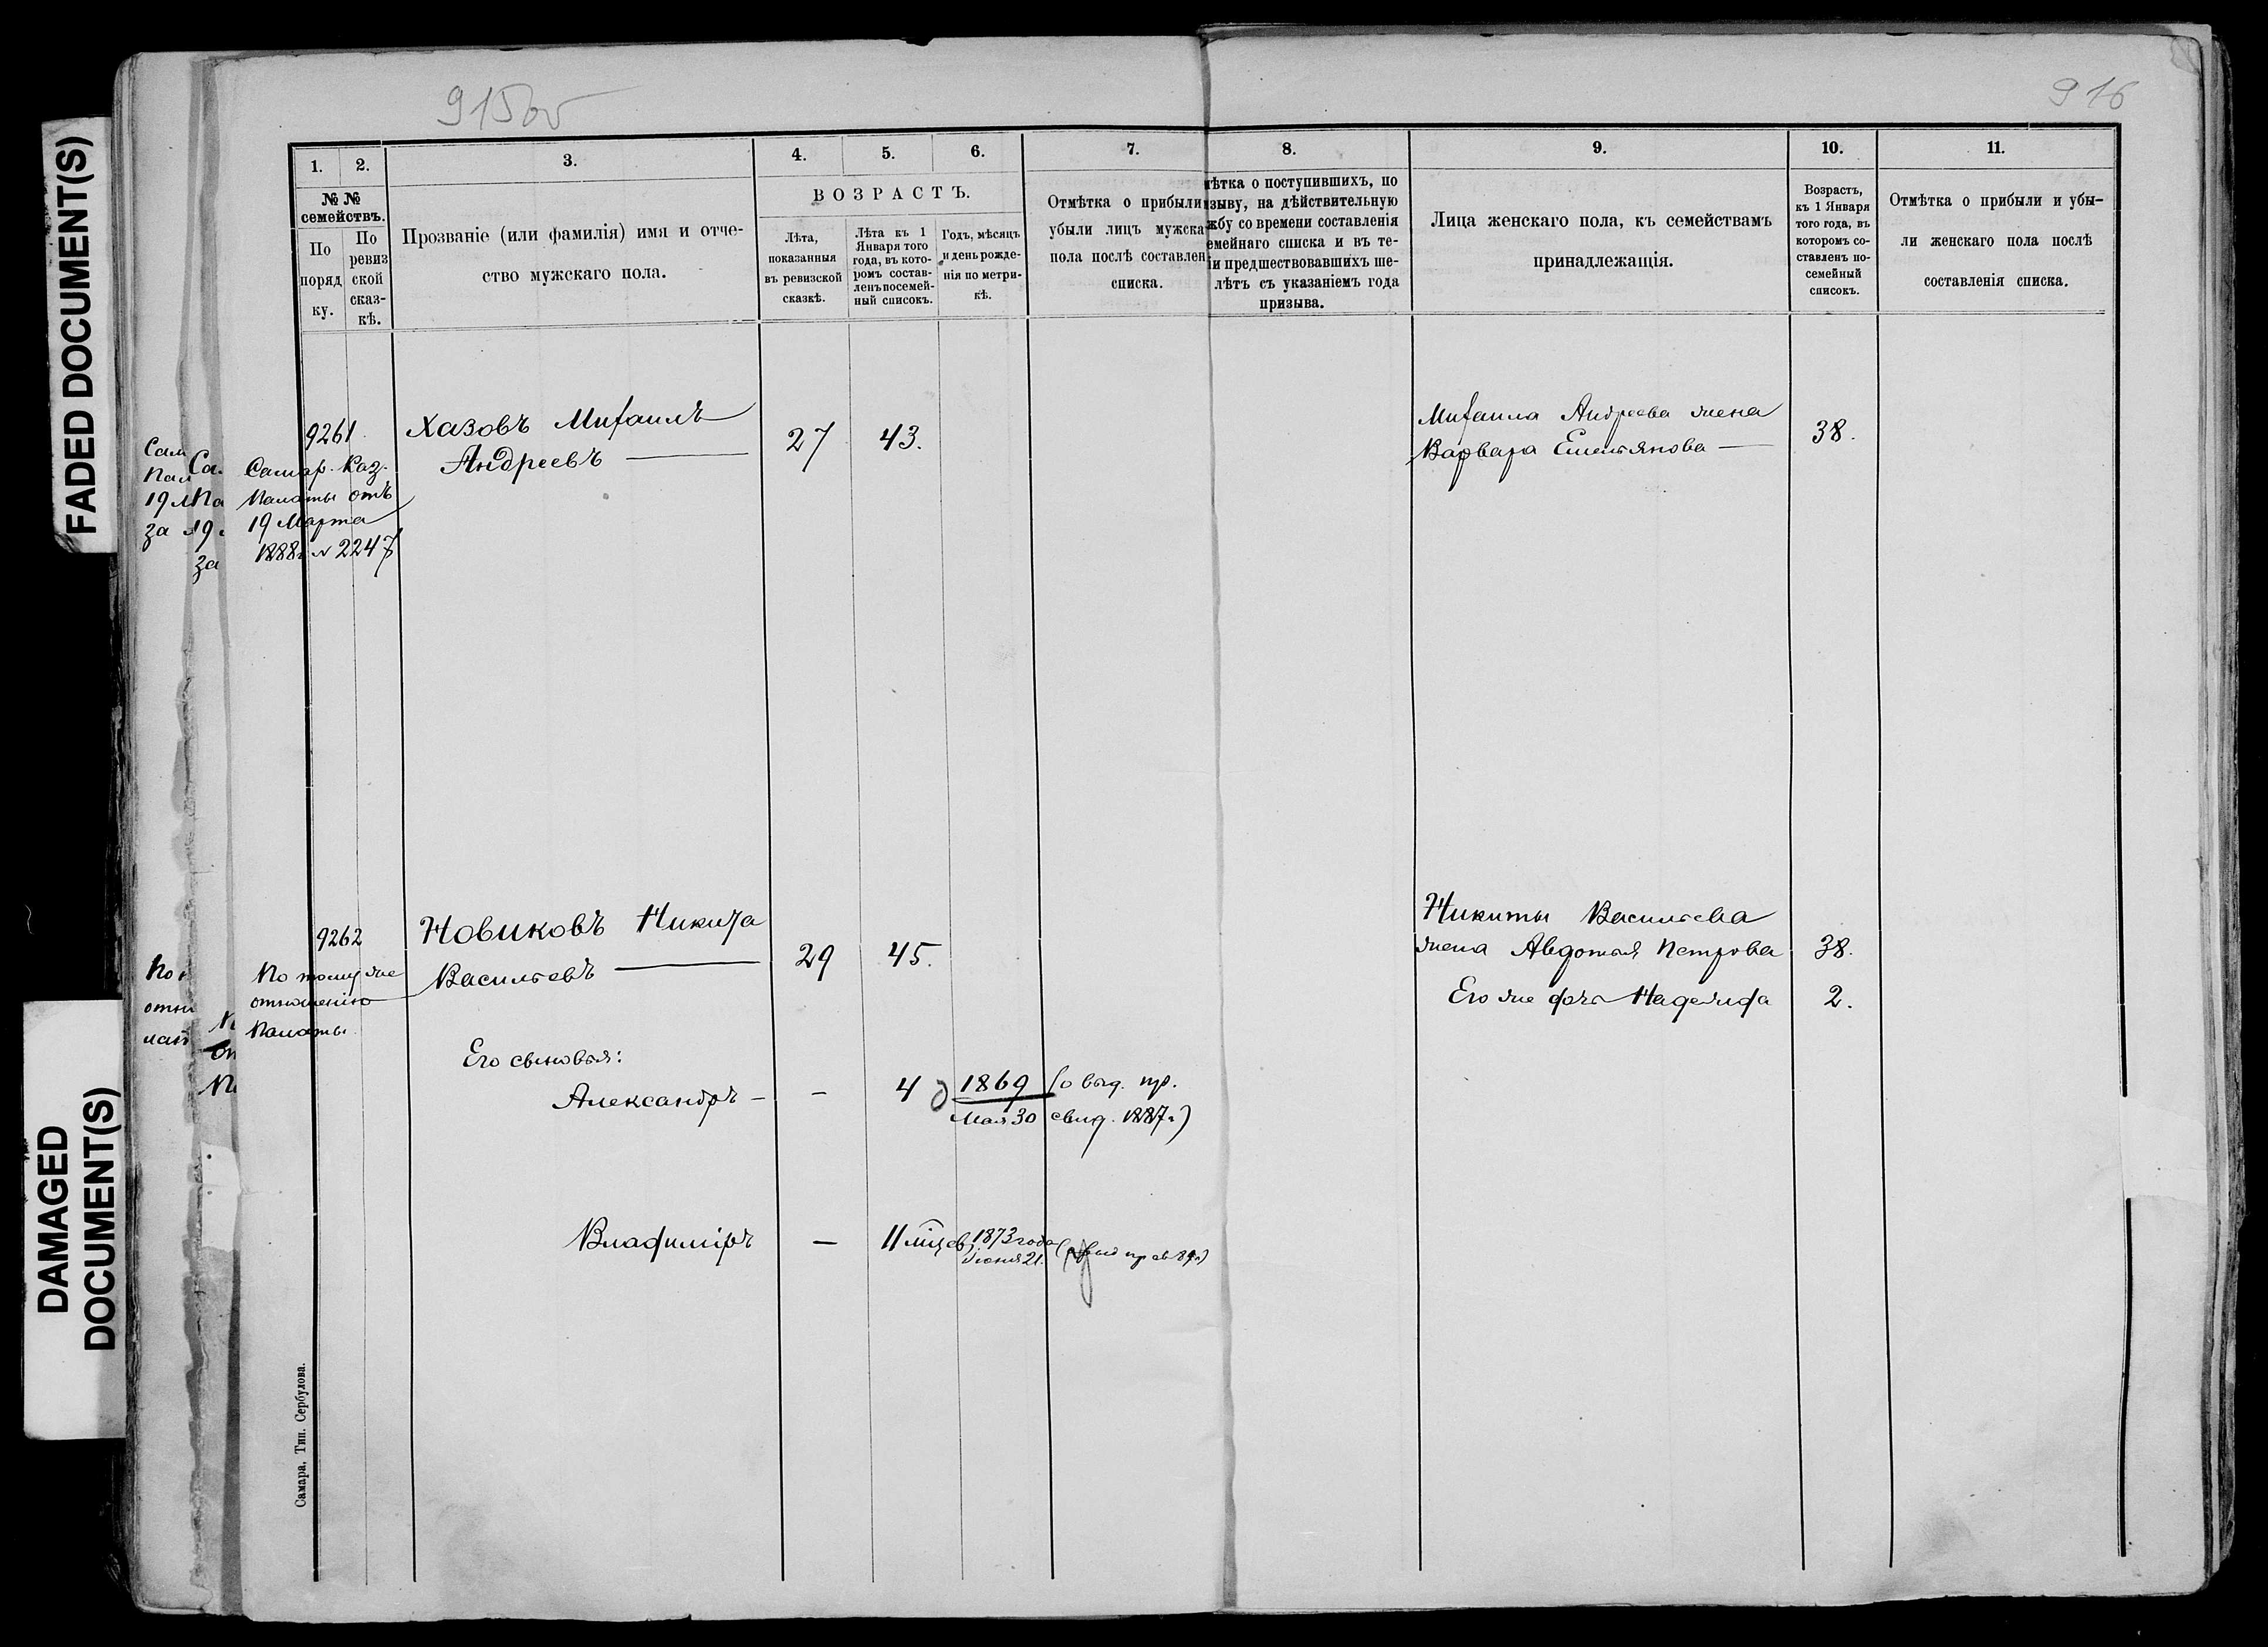 FADED DOCUMENT(S)
DAMAGED
DOCUMENT(S)
915об
916
1.
2.
3.
4.
5.
6.
7.
8.
9.
10.
11.
№ №
семействъ.
По
поряд
ку.
По
ревиз
ской
сказ-
кѣ.
Прозваніе (или фамилія) имя и отче-
ство мужскаго пола.
ВОЗРАСТЪ.
Лѣта,
показанныя
въ ревизской
сказкѣ.
Лѣта къ 1
Января того
года, въ кото-
ромъ состав-
ленъ посемей-
ный списокъ.
Годъ, мѣсяцъ
и день рожде-
нія по метри-
кѣ.
Отмѣтка о прибыли
убыли лицъ мужска
пола послѣ составлен
списка.
мѣтка о поступившихъ, по
изыву, на дѣйствительную
жбу со времени составленія
емейнаго списка и въ те-
іи предшествовавшихъ ше-
лѣтъ съ указаніемъ года
призыва.
Лица женскаго пола, къ семействамъ
принадлежащія.
Возрастъ,
къ 1 Января
того года, въ
которомъ со-
ставленъ по-
семейный
списокъ.
Отмѣтка о прибыли и убы-
ли женскаго пола послѣ
составленія списка.
9261
Самар. Каз.
Палаты отъ
19 Марта
1888г № 2247
Хазовъ Михаилъ
Андреевъ —
27
43.
Михаила Андреева жена
Варвара Емельянова —
38.
9262
По тому же
отношенію
Палаты.
Новиковъ Никита
Васильевъ —
29
45.
Никиты Васильева
жена Авдотья Петрова
38.
Его же дочь Надежда
2.
Его сыновья:
Александръ —
—
4
1869
Мая 30
(о выд. пр.
свид. 1887г)
Владиміръ
—
11 мѣсяцев
1873 года
Іюня 21.
Самара, Тип. Сербулова.